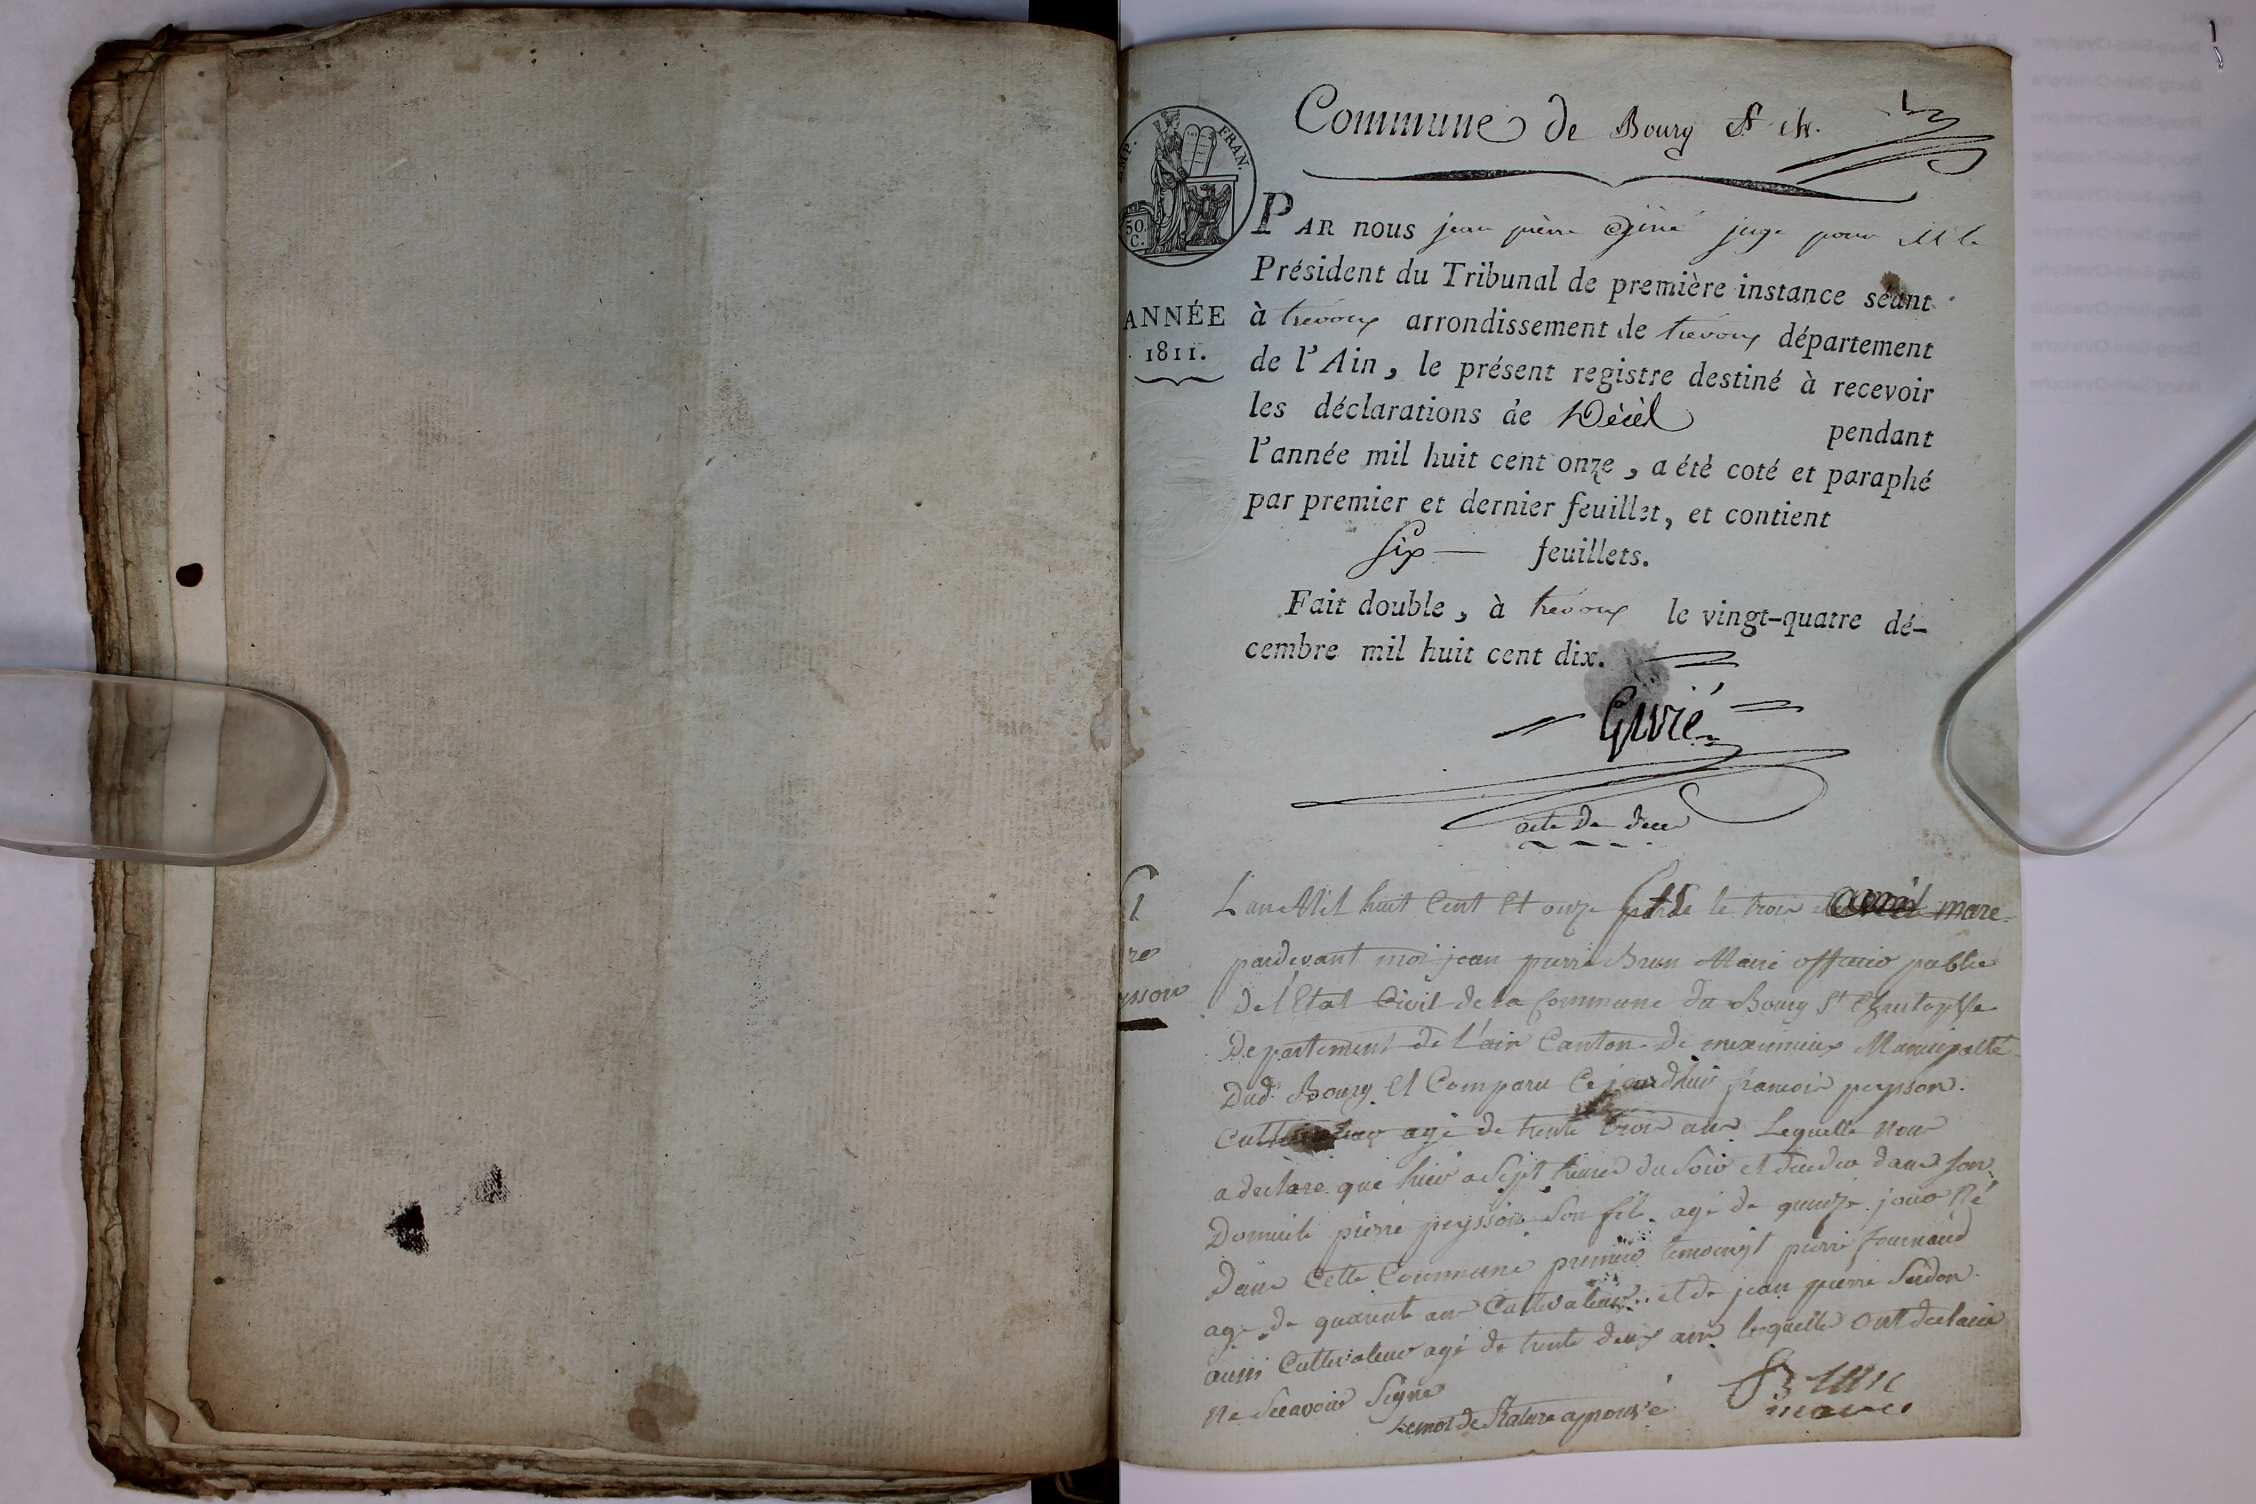 Commune de Bourg St ch.
IMP. FRAN.
50. C.
PAR NOUS jean pierre Givié juge pour M le
Président du Tribunal de première instance séant
ANNÉE
1811.
à trevoux arrondissement de trevoux département
de l'Ain, le présent registre destiné à recevoir
les déclarations de Décès pendant
l'année mil huit cent onze, a été coté et paraphé
par premier et dernier feuillet, et contient
six feuillets.
Fait double, à trevoux le vingt-quatre dé-
cembre mil huit cent dix.
Givié
acte de deces
L'an Mil huit Cent Et onze le trois avril mare
pardevant moi jean pierre Brun Maire officier public
De l'Etat Civil de la Commune du Bourg St Christophe
Departement de l'ain Canton de meximieux Municipalité
Dud. Bourg Et Comparu Ce jourdhuis francois peysson
Cultivateur agé de trente trois ans Lequelle nous
a declare que hier a Sept heures du Soir et decedez dans son
Domicile pierre peysson son fils agé de quinze jour Né
Dans Cette Commune premier temoin pierre fournaud
agé de quarente ans Cultivateur et de jean pierre Serdon
aussi Cultivateur agé de trente deux ans lequelle ont declaré
Ne Scavoir Signe
Le mot de Rature aprouvé
Brun
maire
ysson